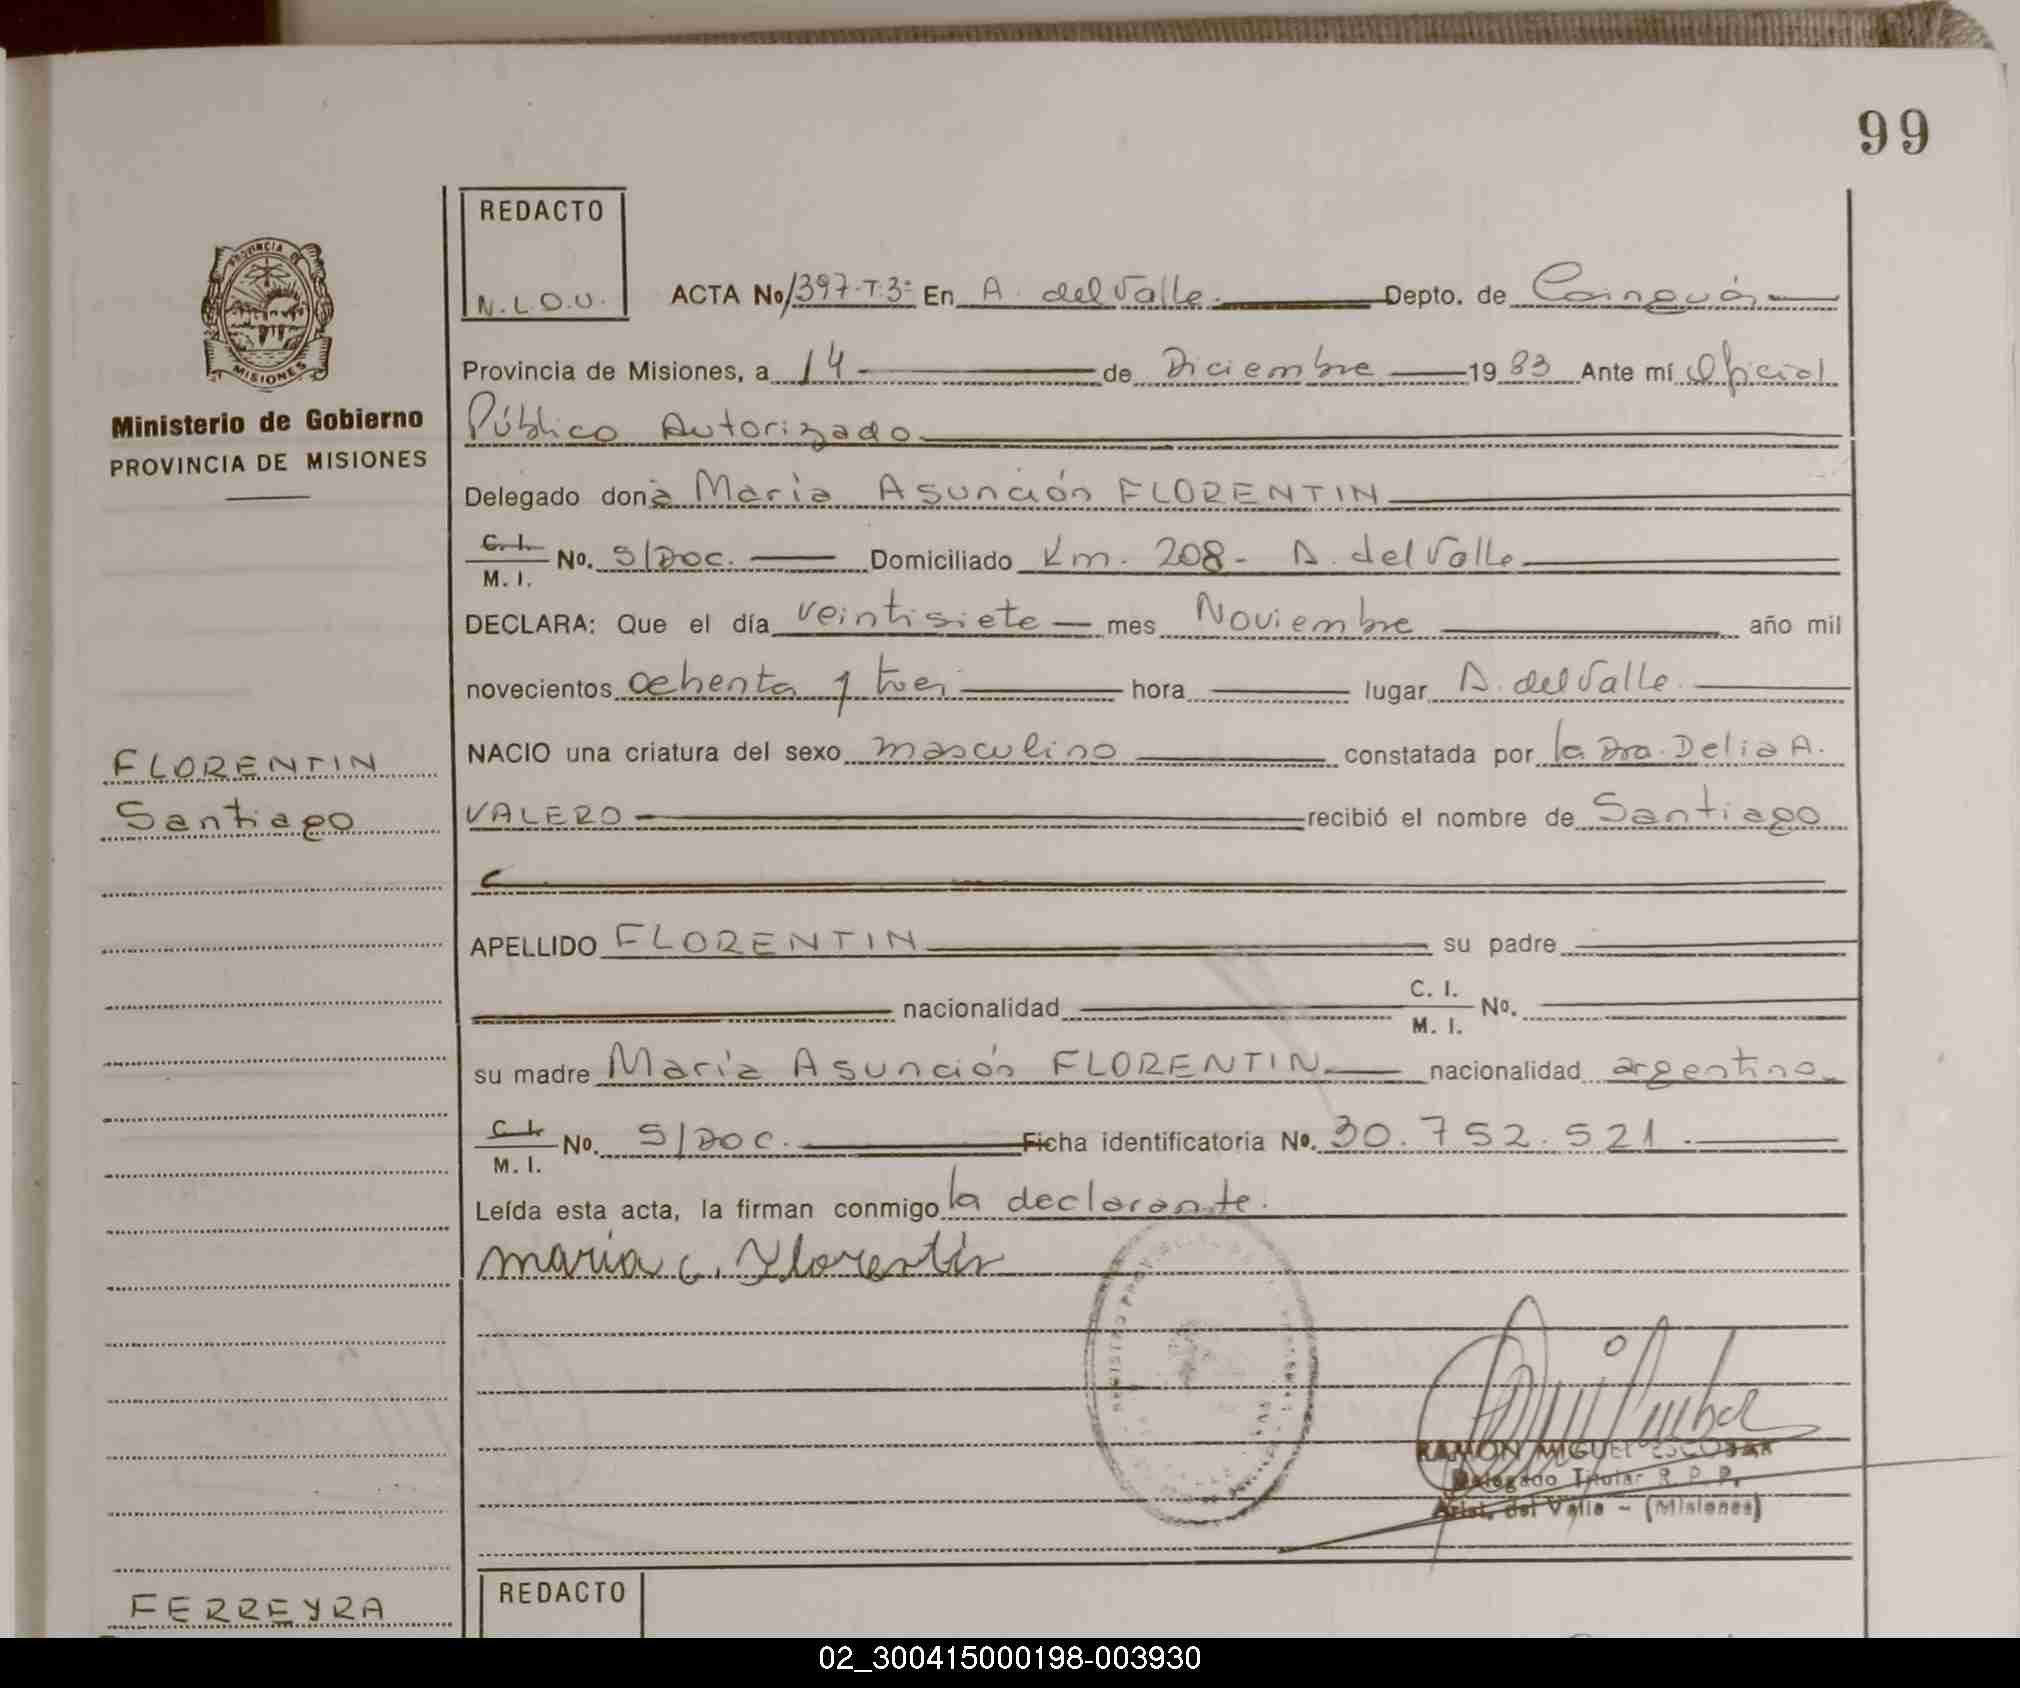 99
REDACTO
N.L.O.U.
PROVINCIA DE
MISIONES
Ministerio de Gobierno
PROVINCIA DE MISIONES
ACTA No/397-T.3º En A. del Valle. Depto. de Cainguás
Provincia de Misiones, a 14 de Diciembre 1983 Ante mí Oficial
Público Autorizado
Delegado doña María Asunción FLORENTIN
C. I. M. I. No. S/Doc. Domiciliado Km. 208- A. del Valle
DECLARA: Que el día veintisiete mes Noviembre año mil
novecientos ochenta y tres hora lugar A. del Valle.
FLORENTIN
Santiago
NACIO una criatura del sexo masculino constatada por la Dra. Delia A.
VALERO recibió el nombre de Santiago
APELLIDO FLORENTIN su padre
nacionalidad C. I. M. I. No.
su madre María Asunción FLORENTIN nacionalidad argentina
C. I. M. I. No. S/Doc. Ficha identificatoria No. 30.752.521.
Leída esta acta, la firman conmigo la declarante.
maria a. Florentin
RAMON MIGUEL ESCOBAR
Delegado Titular R. P. P.
Arist. del Valle - (Misiones)
FERREYRA
REDACTO
02_300415000198-003930